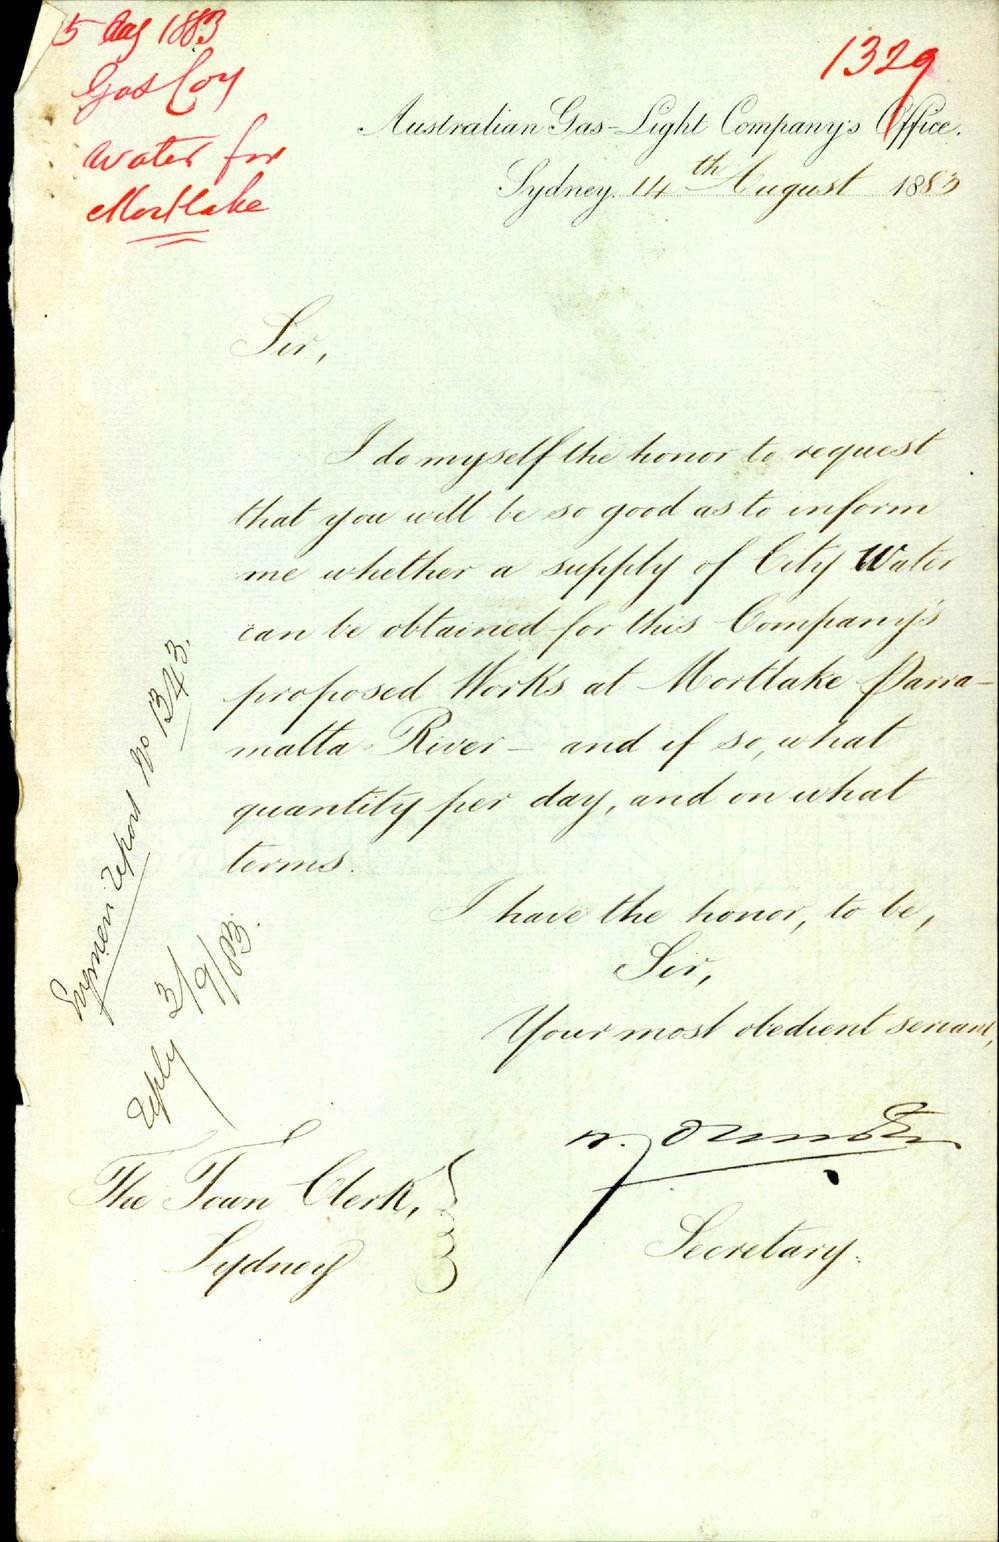 5 Aug 1883
Gas Coy
Water for
Mortlake
1329
Australian Gas-Light Company's Office.
Sydney 14th August 1883
Sir,
I do myself the honor to request
that you will be so good as to inform
me whether a supply of City Water
can be obtained for this Company's
proposed Works at Mortlake Parra-
matta River - and if so, what
quantity per day, and on what
terms.
I have the honor, to be,
Sir,
Your most obedient servant,
Secretary.
The Town Clerk,
Sydney
Engineers Report No 1343.
Reply 3/9/83.